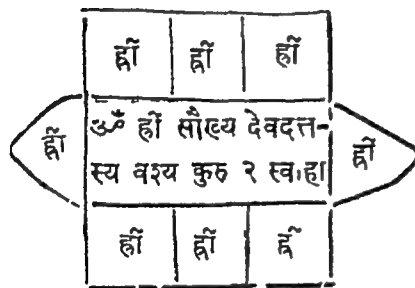 ह्रीं ह्रीं ह्रीं
ह्रीं ॐ ह्रीं सौख्य देवदत्त- ह्रीं
स्य वश्य कुरु २ स्वाहा
ह्रीं ह्रीं ह्रीं